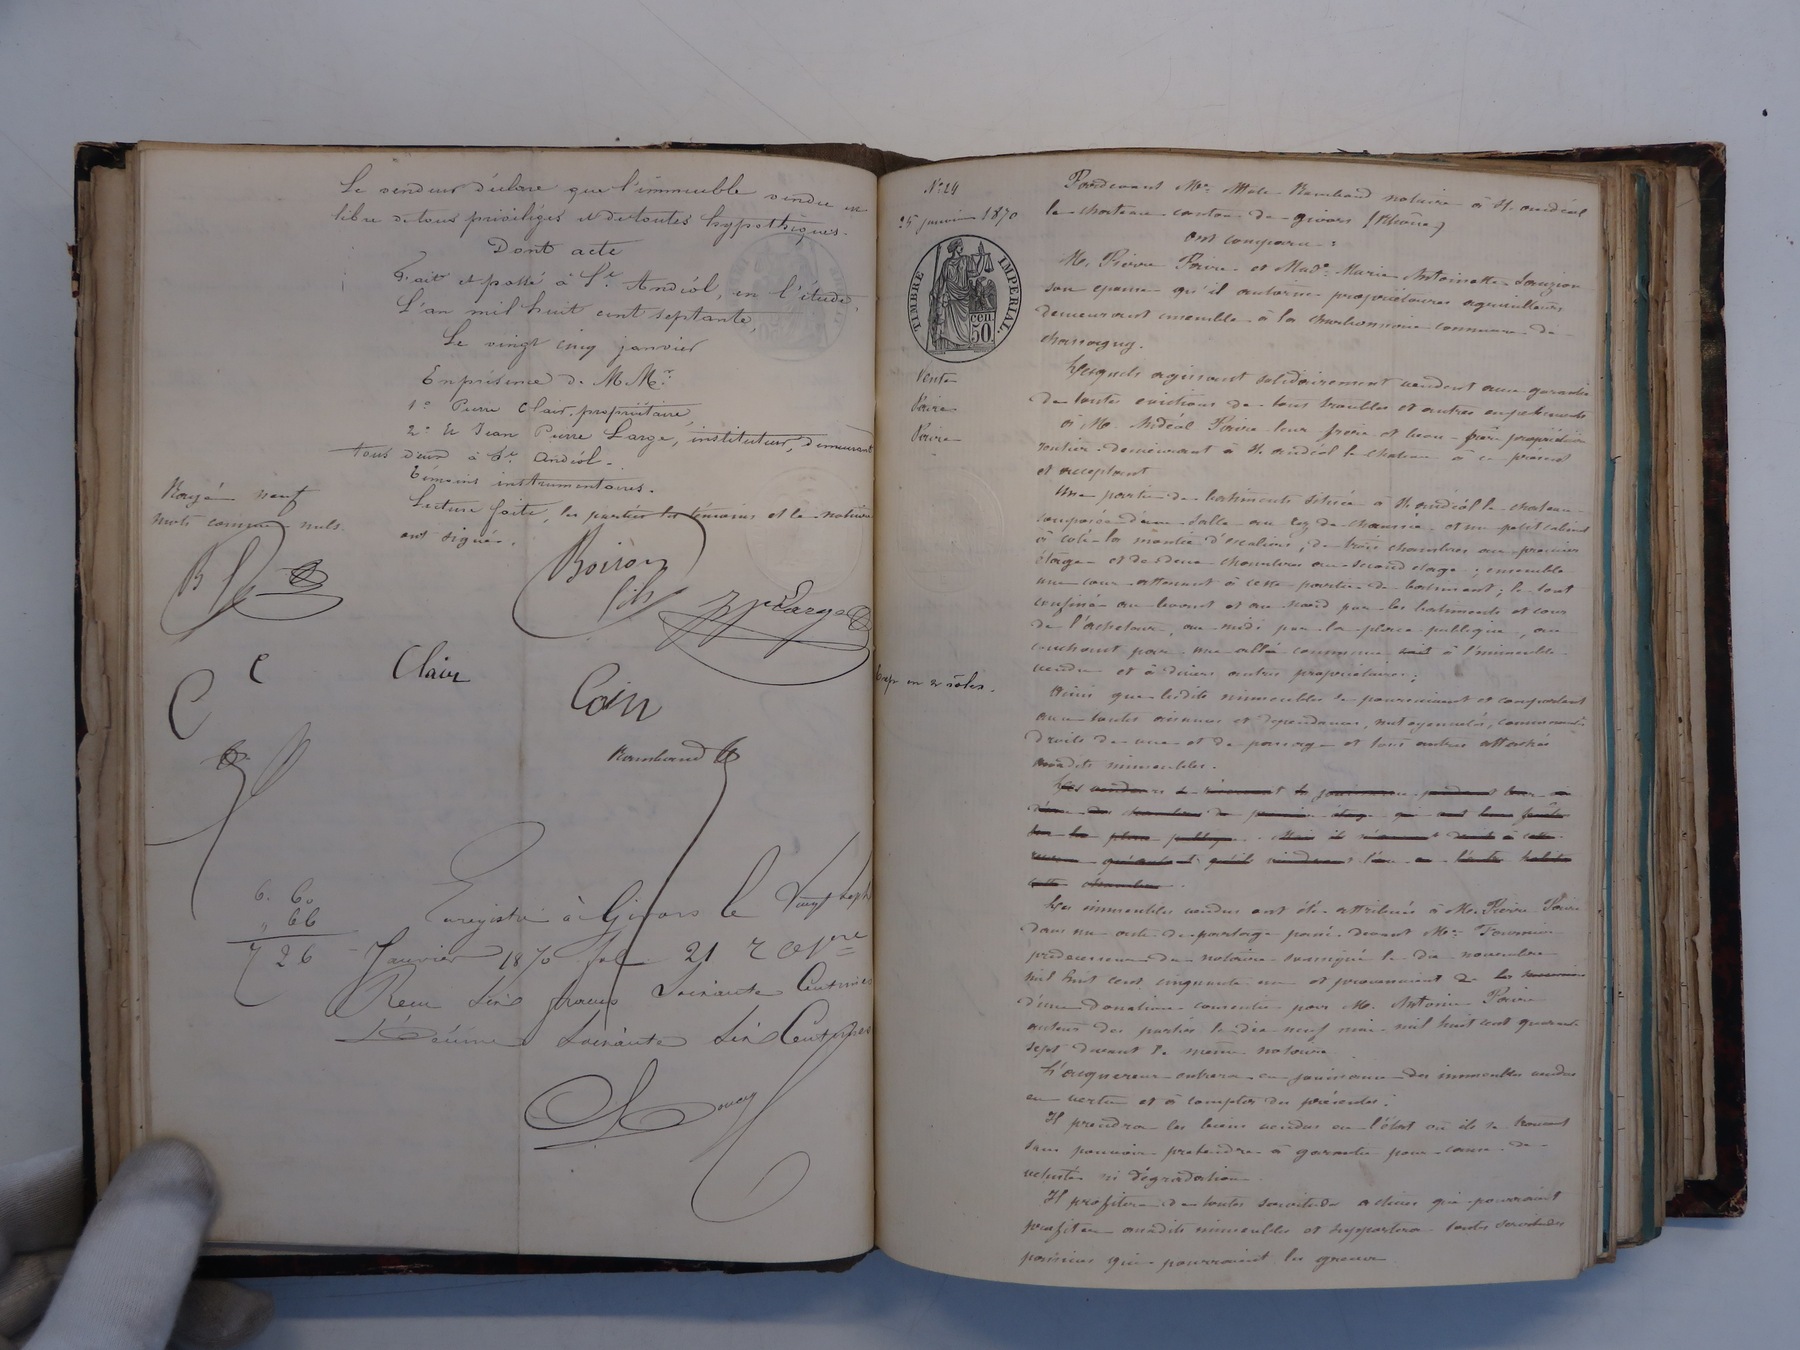 Le vendeur déclare que l'immeuble vendu est
libre de tous privilèges et de toutes hypothèques.
Dont acte
Fait et passé à St. Andéol, en l'étude,
L'an mil huit cent septante,
Le vingt cinq janvier
En présence de M.Mrs
1° Pierre Clair, propriétaire,
2° et Jean Pierre Large, instituteur, demeurant
tous deux à St. Andéol.
Témoins instrumentaires.
Lecture faite, les parties les témoins et le notaire
ont signé.
Rayé neuf
mots comme nuls
B
Boiron
fils
JP Large
C
C
Clair
Coin
Rambaud
6. 60
" 66
7 26
Enregistré à Givors le vingt sept
Janvier 1870 fol 21
Reçu six francs soixante centimes
Décime soixante six centimes
N° 24
25 janvier 1870
TIMBRE IMPERIAL
50 CEN.
Vente
Poire
Poire
Exp en 2 rôles.
Pardevant Me Rambaud notaire à St. andéol
le chateau canton de givors (Rhône)
ont comparu :
M. Pierre Poire et Made Marie Antoinette
son épouse qu'il autorise propriétaires agriculteurs
demeurant ensemble à la charbonnière commune de
chassagny.
Lesquels agissant solidairement vendent avec garantie
de toutes evictions de tous troubles et autres empêchements
à M. Andéol Poire leur frère et beau-frère propriétaire
rentier demeurant à St andéol le chateau à ce présent
et acceptant
Une partie de batiments située à St andéol le chateau
composée d'une salle au rez de chaussée et un petit cabinet
à coté la montée d'escaliers, de trois chambres au premier
étage et de deux chambres au second etage ; ensemble
une cour attenant à cette partie de batiment ; le tout
confiné au levant et au nord par les batiments et cour
de l'acheteur, au midi par la place publique, au
couchant par une allée commune à l'immeuble
vendu et à divers autres propriétaires ;
Ainsi que lesdits immeubles se poursuivent et comportent
avec toutes aisances et dépendances, mitoyennetés, communautés
droits de vue et de passage et tous autres attachés
auxdits immeubles.
Les immeubles vendus ont été attribués à M. Pierre Poire
dans un acte de partage passé devant Me
prédécesseur du notaire soussigné le dix novembre
mil huit cent cinquante un et provenaient
d'une donation consentie par M. Antoine Poire
auteur des parties le dix neuf mai mil huit cent quarante
sept devant le même notaire
L'acquereur entrera en jouissance des immeubles vendus
en vertu et à compter des présentes ;
Il prendra les biens vendus en l'état où ils se trouvent
sans pouvoir prétendre à garantie pour cause de
vetusté ni dégradation
Il profitera de toutes servitudes actives qui pourraient
profiter auxdits immeubles et supportera toutes servitudes
passives qui pourraient les grever